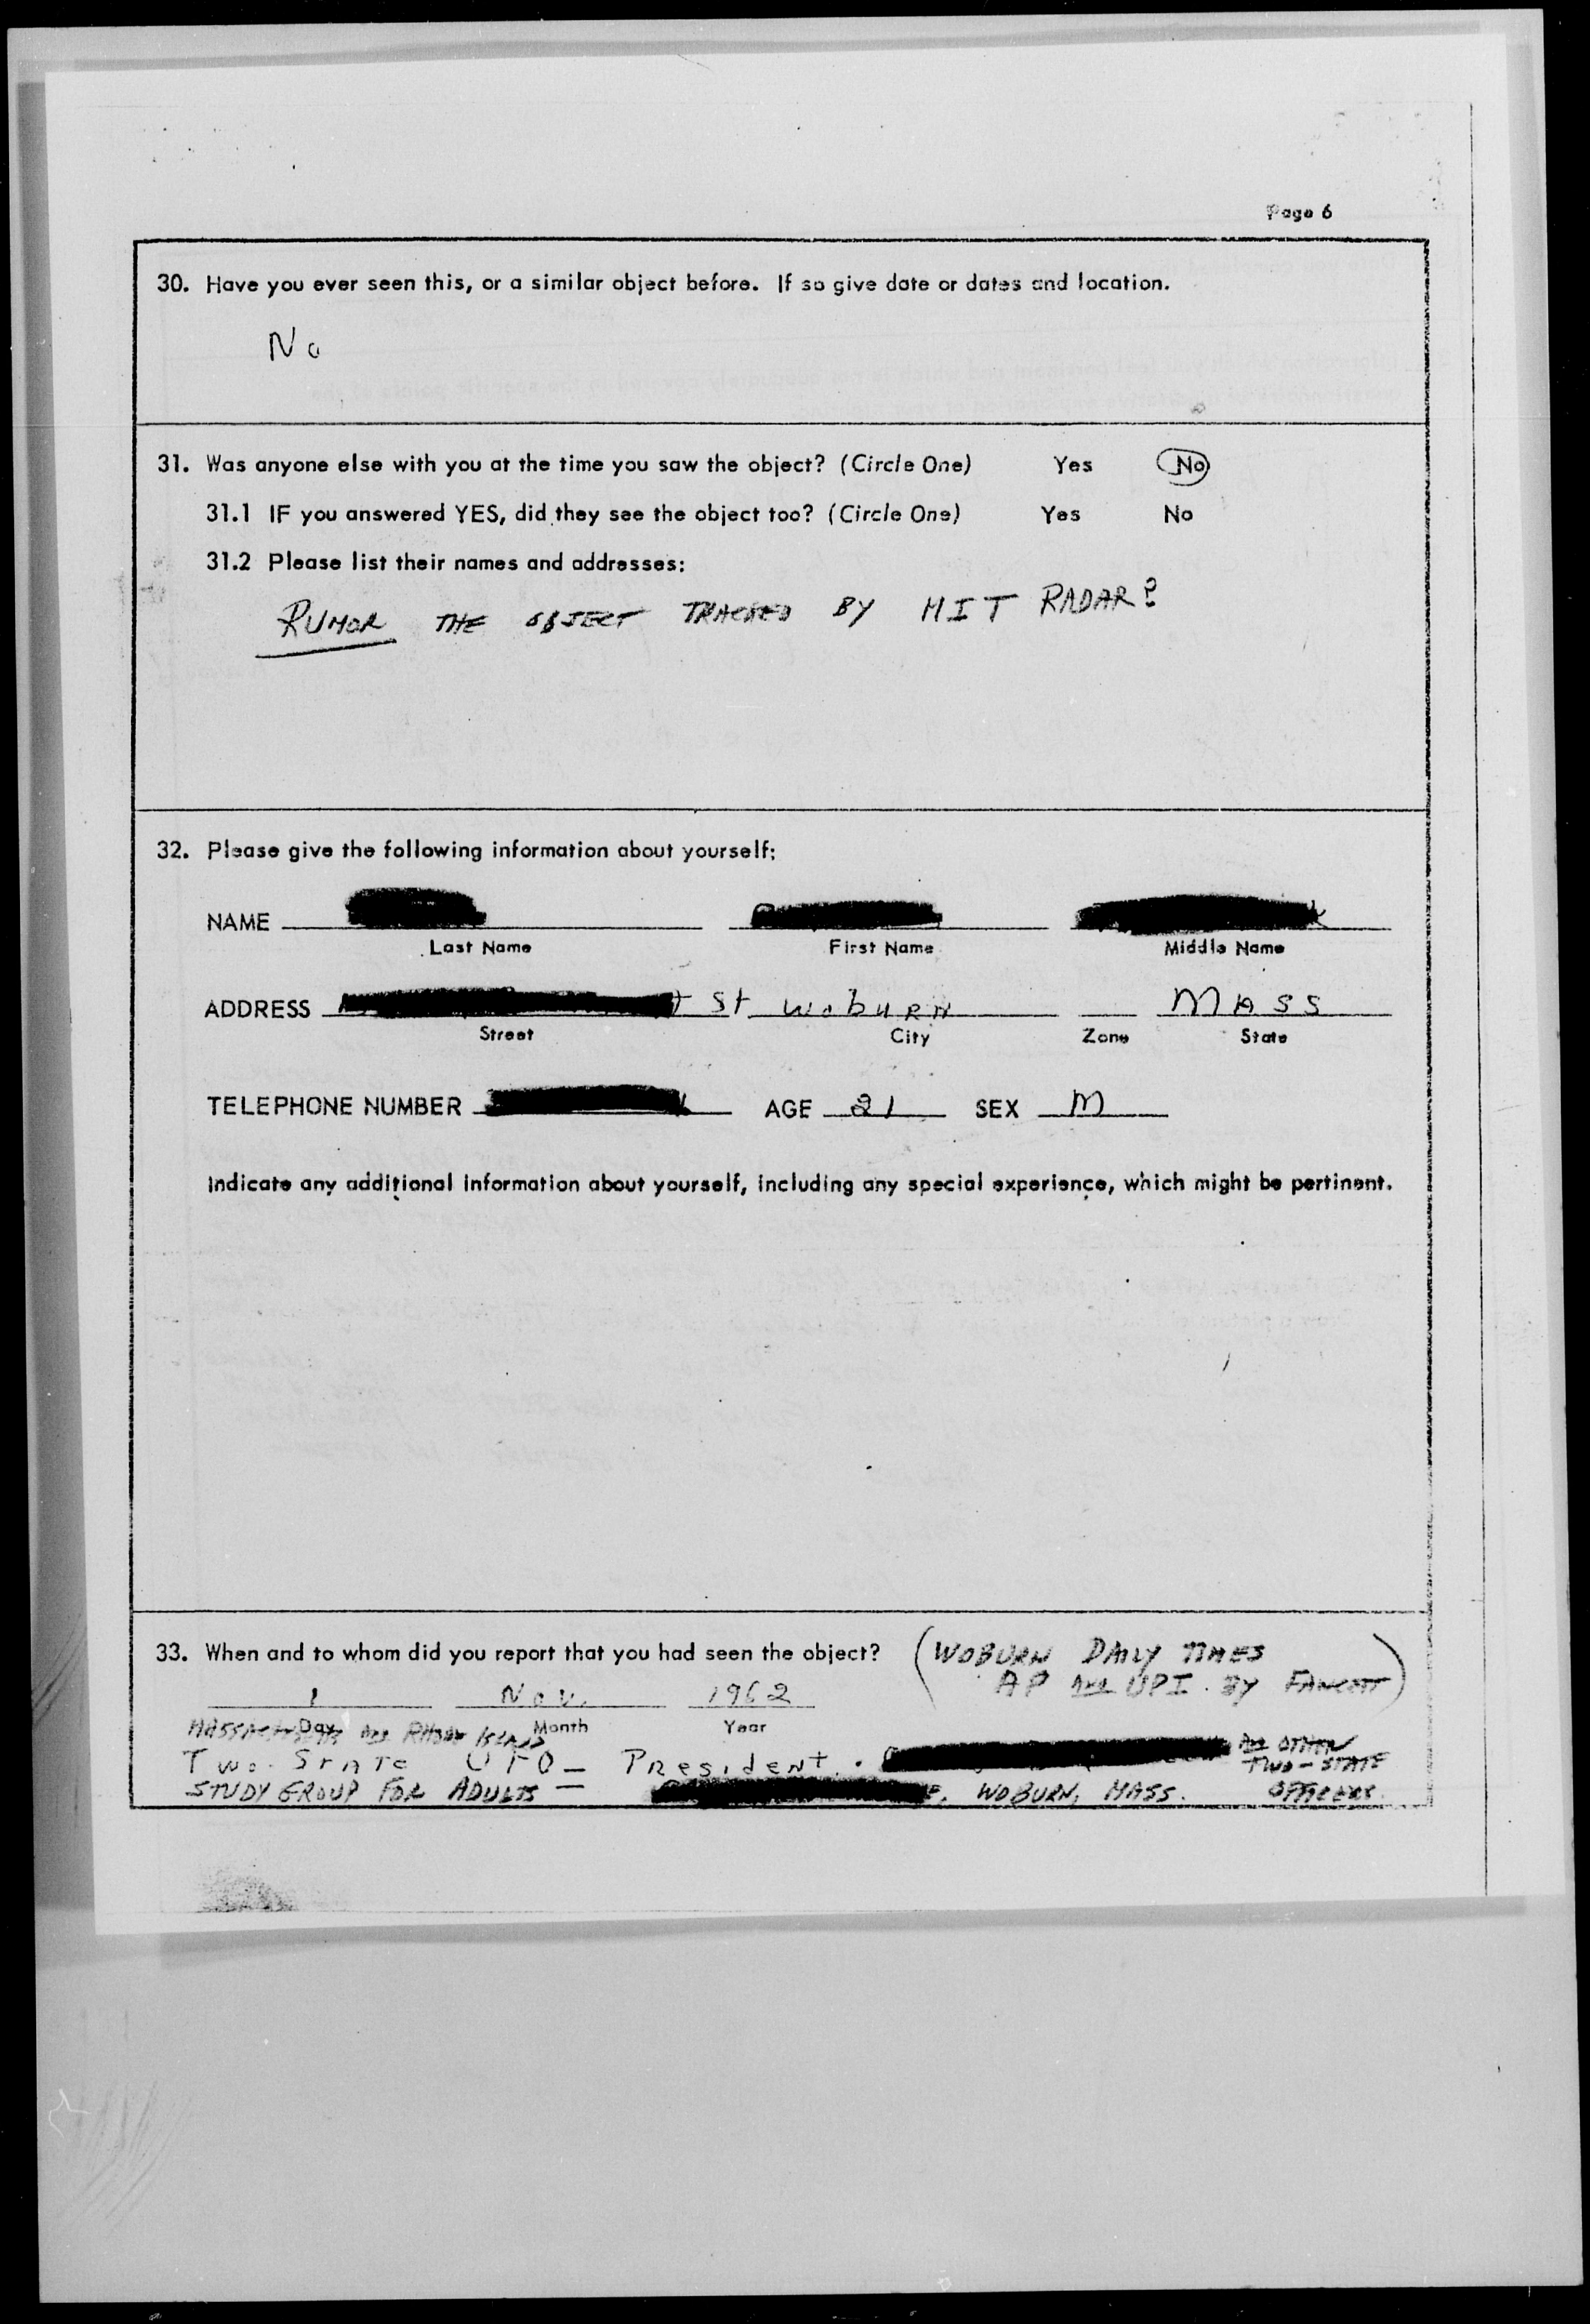 Page 6
30. Have you ever seen this, or a similar object before. If so give date or dates and location.
No
31. Was anyone else with you at the time you saw the object? (Circle One) Yes No
31.1 IF you answered YES, did they see the object too? (Circle One) Yes No
31.2 Please list their names and addresses:
RUMOR THE OBJECT TRACKED BY MIT RADAR?
32. Please give the following information about yourself:
NAME
Last Name First Name Middle Name
ADDRESS St WobURN MASS
Street City Zone State
TELEPHONE NUMBER AGE 21 SEX M
Indicate any additional information about yourself, including any special experience, which might be pertinent.
33. When and to whom did you report that you had seen the object? (WOBURN DAILY TIMES
AP AND UPI. BY )
1 Nov. 1962
Day Month Year
MASSACHUSETTS AND RHODE ISLAND
Two. STATE UFO – PResideNT. AND OTHER
TWO-STATE
STUDY GROUP FOR ADULTS – WOBURN, MASS. OFFICERS.